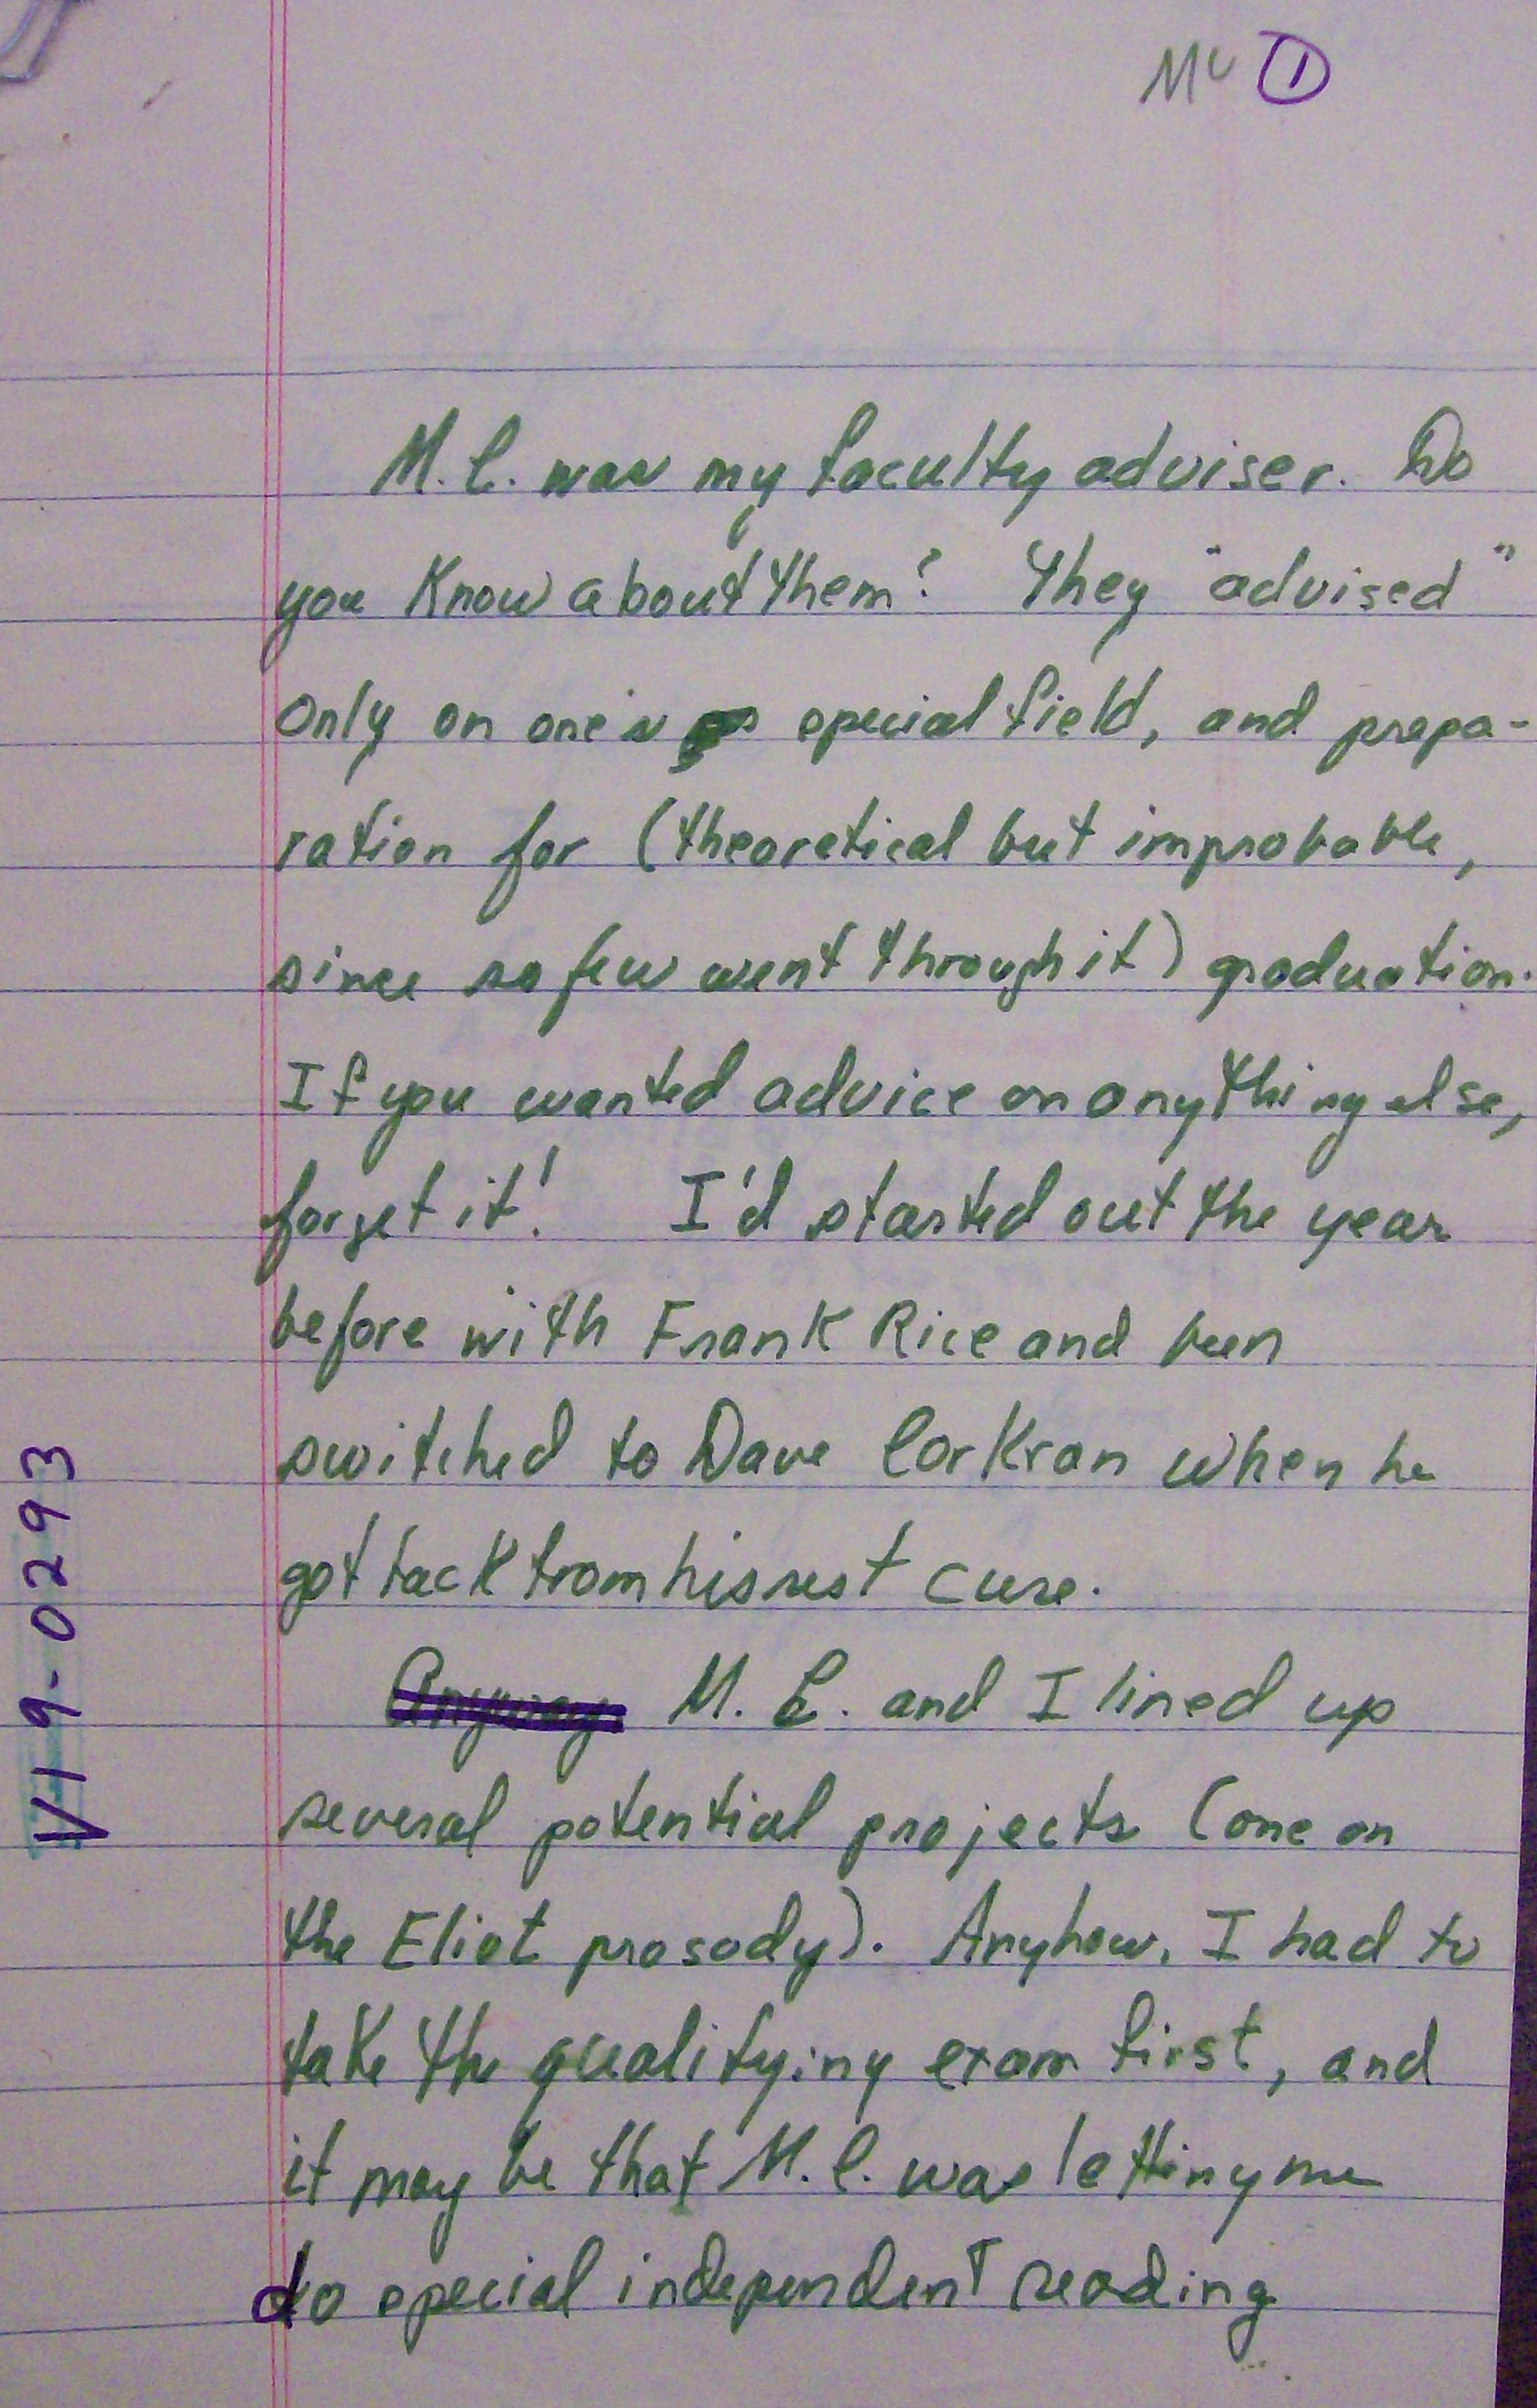 MC 1
M.C. was my faculty adviser. Do
you know about them? They "advised"
only on one's special field, and prepa-
ration for (theoretical but improbable,
since so few went through it) graduation.
If you wanted advice on anything else,
forget it! I'd started out the year
before with Frank Rice and been
switched to Dave Corkran when he
got back from his rest cure.
Anyway M.C. and I lined up
several potential projects (one on
the Eliot prosody). Anyhow, I had to
take the qualifying exam first, and
it may be that M.C. was letting me
do special independent reading
V19-0293